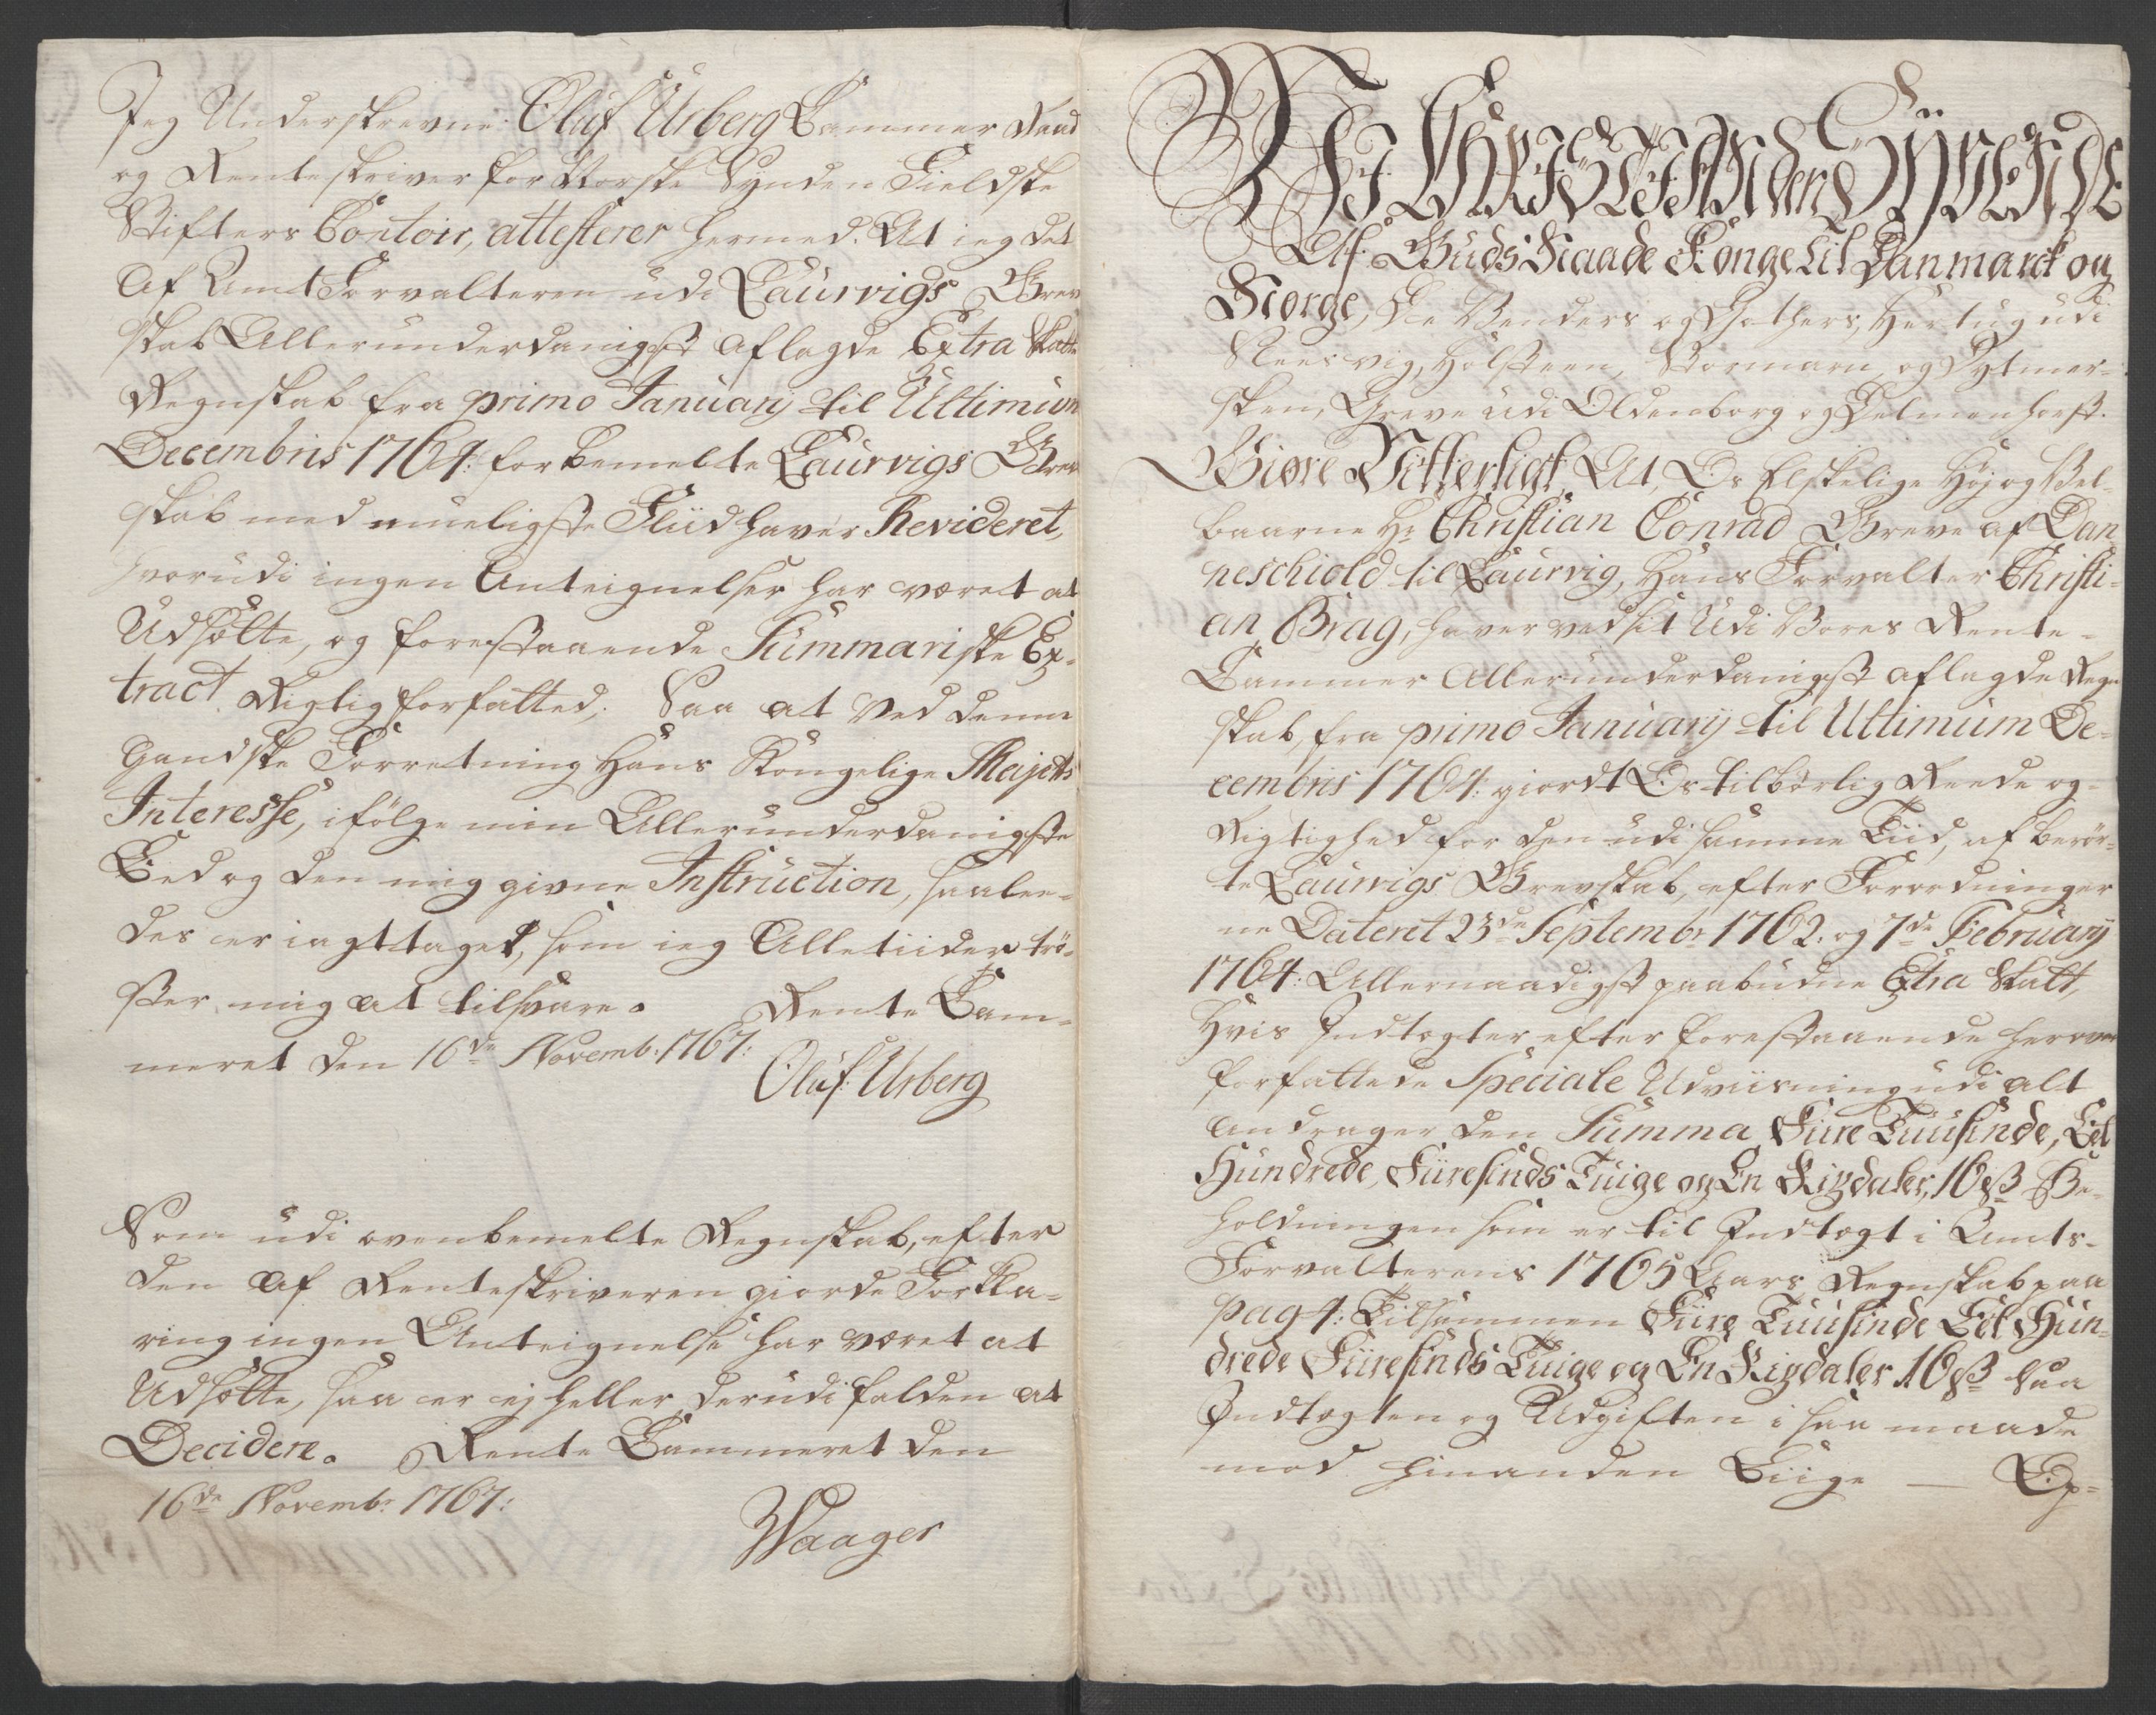 Jeg Underskrevne Oluf Urberg Cammer Raad
og Renteskriver for Norske Synden Fieldske
Stifters Contoir, attesterer hermed. At ieg det
af AmtForvalteren udi Laurvigs Grev
skab Allerunderdanigst aflagde Extra Skatte
Regnskab fra primo Januarij til Ultimum
Decembris 1764: for bemelte Laurvigs Grev
skab med mueligste Fliid haver Revideret,
hvorudi ingen Anteignelser har været at
Udsætte, og forestaaende Summariske Ex-
tract Rigtig forfatted; Saa at ved denne
gandske Forretning Hans Kongelige Majets
Interesse, ifølge min Allerunderdanigste
Eed og den mig givne Instruction, saalee-
des er iagttaget, som ieg Alletiider trø-
ster mig at tilsvare. Rente Cam-
meret den 16de Novemb: 1767:
Oluf Urberg
Som udi ovenbemelte Regnskab, efter
den af Renteskriveren giorde Forkla-
ring ingen Anteignelse har været at
Udsætte, saa er ej heller derudi falden at
Decidere. Rente Cammeret den
16de Novembr 1767:
Waager
Wi Christian den Syvende
Af Guds Naade Konge til Danmarck og
Norge, De Venders og Gothers, Hertug udi
Sleesvig, Holsteen, Stormarn og Dytmer-
sken, Greve udi Oldenborg og Delmenhorst.
Giøre Vitterligt, At, Os Elskelige Høj og Vel-
baarne Hr Christian Conrad Greve af Dan
neschiold til Laurvig, Hans Forvalter Christi-
an Brag, haver ved sit Udi Vores Rente-
Cammer Allerunderdanigst aflagde Regn
skab, fra primo Januarij til Ultimum De-
cembris 1764: giordt Os tilbørlig Reede og
Rigtighed for den udi samme Tiid, af berør-
te Laurvigs Grevskab, efter Forordninger
ne Dateret 23de Septembr 1762. og 7de February
1764: Allernaadigst paabudne Extra Skatt,
Hvis Indtægter efter forestaaende herover
forfattede Speciale Udviisning udi alt
andrager den Summa Fiire Tuusinde, Eet
Hundrede, Fiiresinds Tiuge og En Rixdaler, 16 ß Be-
holdningen som er til Indtægt i Amts-
Forvalterens 1765 Aars Regnskab paa
pag 4: Tilsammen Fiire Tuusinde Eet Hun-
drede Fiiresinds Tiuge og En Rixdaler 16 ß saa
Indtægten og Udgiften i saa maade
mod hinanden Liige — Ep-